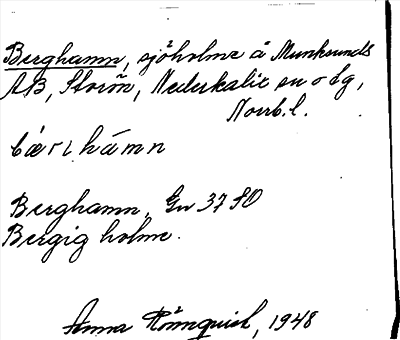 Berghamn, sjöholme å Munksunds
AB, Storön, Nederkalix sn o dg,
Norrb. l.
bæ̀rɩhámn
Berghamn, Gn 37 SO
Bergig holme.
Anna Rönnquist, 1948